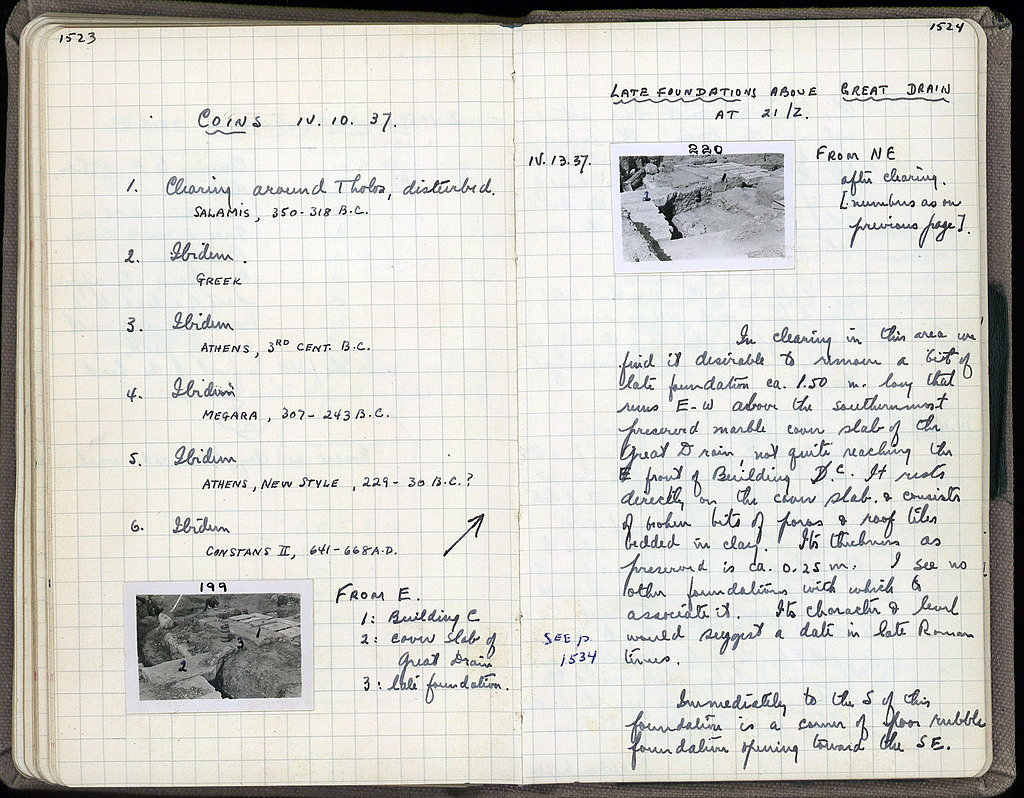 1523
COINS IV. 10. 37.
1. Clearing around Tholos, disturbed.
SALAMIS, 350-318 B.C.
2. Ibidem.
GREEK
3. Ibidem
ATHENS, 3RD CENT. B.C.
4. Ibidem
MEGARA, 307-243 B.C.
5. Ibidem
ATHENS, NEW STYLE, 229-30 B.C.?
6. Ibidem
CONSTANS II, 641-668 A.D.
199
2
3
1
FROM E.
1: Building C
2: cover slab of
Great Drain
3: late foundation.
1524
LATE FOUNDATIONS ABOVE GREAT DRAIN
AT 21/Z.
IV.13.37.
220
FROM NE
after clearing.
[numbers as on
previous page].
In clearing in this area we
find it desirable to remove a bit of
late foundation ca. 1.50 m. long that
runs E-W above the southernmost
preserved marble cover slab of the
Great Drain, not quite reaching the
E front of Building C. It rests
directly on the cover slab & consists
of broken bits of poros & roof tiles
bedded in clay. Its thickness as
preserved is ca. 0.25 m. I see no
other foundations with which to
associate it. Its character & level
would suggest a date in late Roman
times.
SEE p.
1534
Immediately to the S of this
foundation is a corner of poor rubble
foundation opening toward the SE.